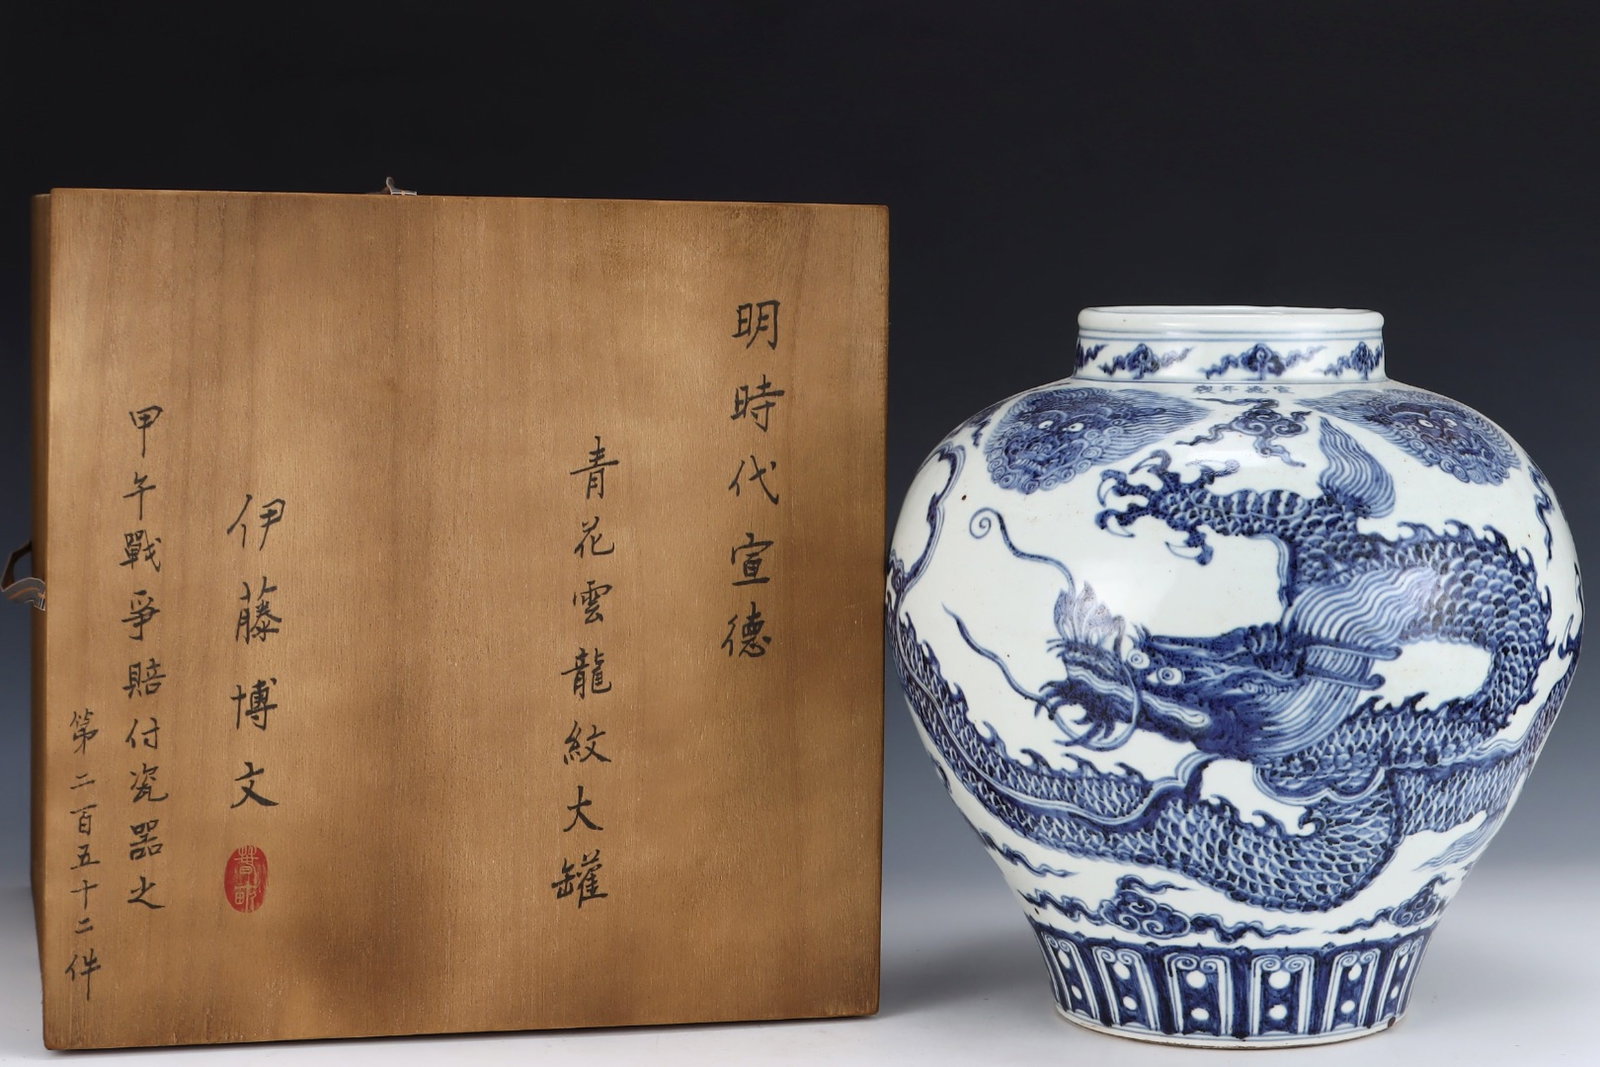 明時代宣德
青花雲龍紋大罐
伊藤博文
甲午戰爭賠付瓷器之
第二百五十二件